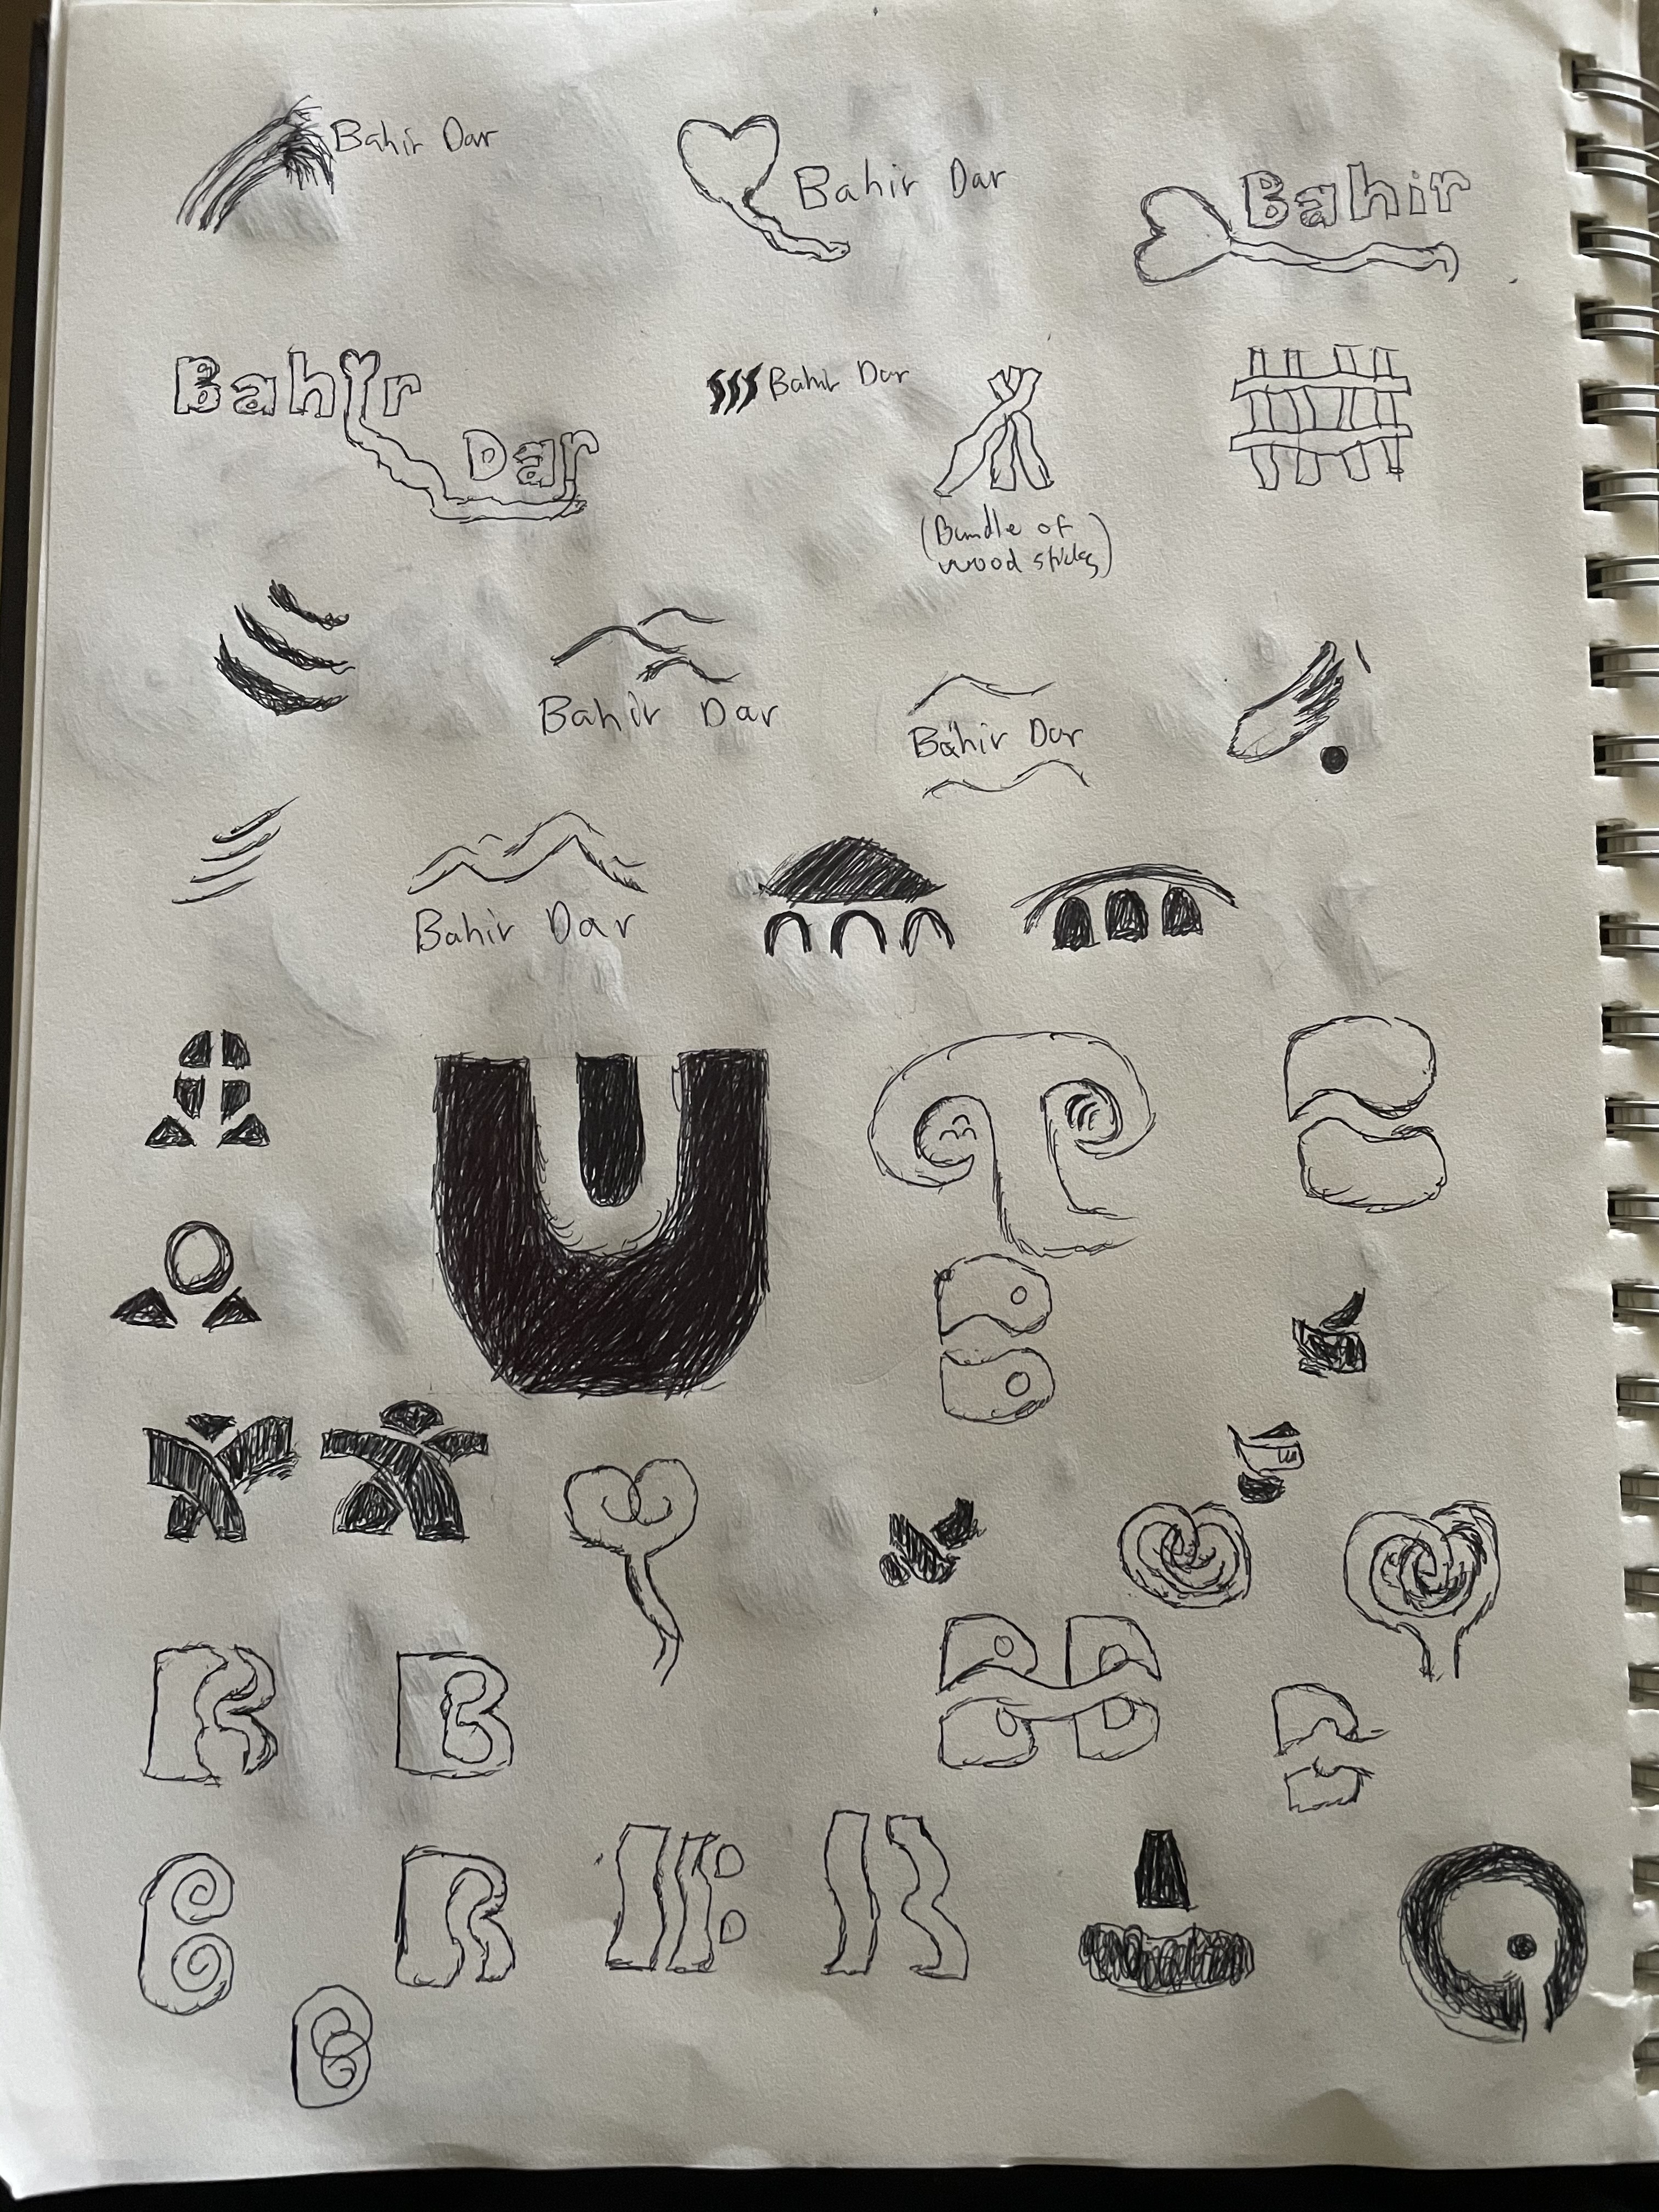 Bahir Dar
Bahir Dar
Bahir
Bahir
Dar
Bahir Dar
(Bundle of
wood sticks)
Bahir Dar
Bahir Dar
Bahir Dar